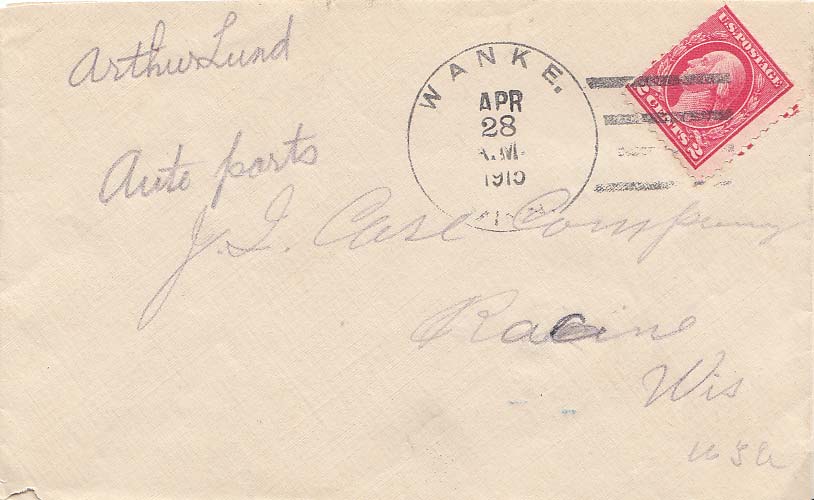 Arthur Lund
WANKE.
APR
28
A.M.
1915
U.S. POSTAGE
2 CENTS 2
Auto parts
J. I. Case Company
Racine
Wis
USA